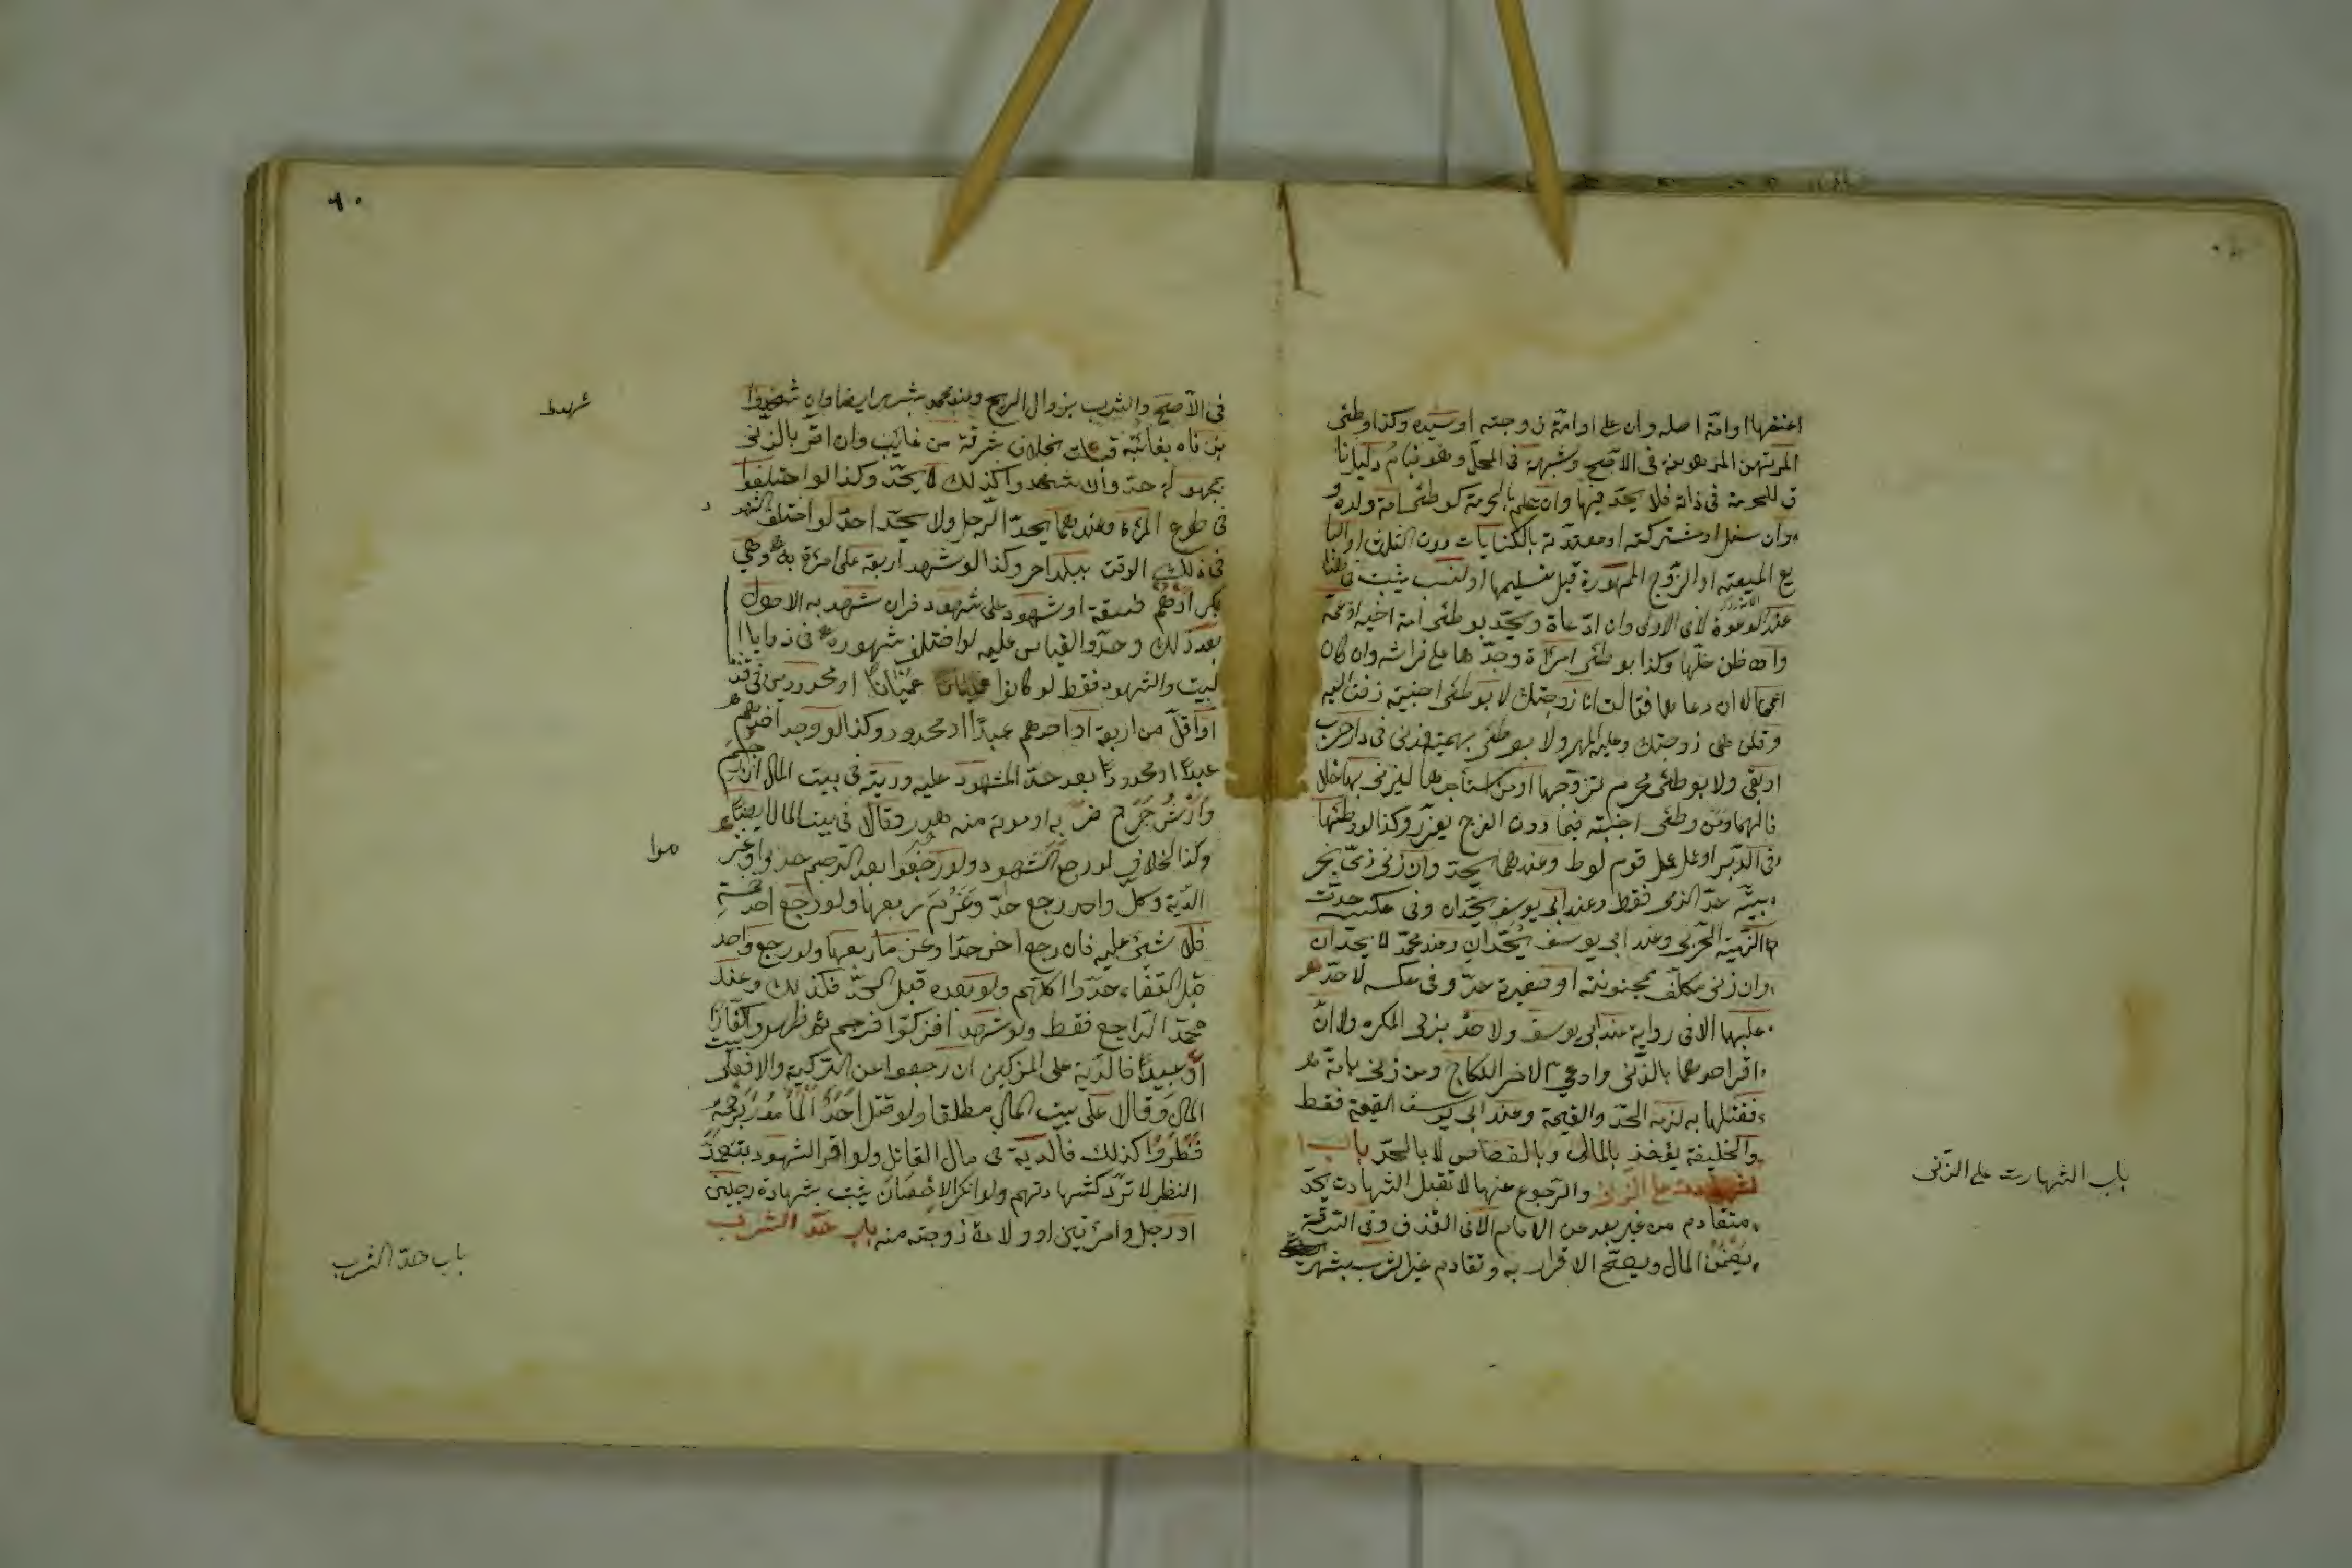 اعتقها او امة اصله وان علا او امة زوجته او سيده وكذا وطئ
المرتهن المرهونة في الاصح وشبهة في المحل وهو قيام دليل نا
ف للحرمة في ذاته فلا يحد فيها وان علم بالحرمة كوطئ امة ولده و
وان سفل او مشتركته او معتدته بالكنايات دون الثلث او البا
يع المبيعة او الزوج الممهورة قبل تسليمها والنسب يثبت في
عند الدعوة لا في الاولى وان ادعاه ويحد بوطئ امة اخيه او عمه
وان ظن حلها وكذا بوطئ امرأة وجدها على فراشه وان كان
اعمى الا ان دعاها فقالت انا زوجتك لا بوطئ اجنبية زفت اليه
وقلن هي زوجتك وعليه المهر ولا بوطئ بهيمة وزنى في دار حرب
او بغي ولا بوطئ محرم تزوجها او من استأجرها ليزني بها خلا
فا لهما ومن وطئ اجنبية فيما دون الفرج يعزر وكذا لو وطئها
في الدبر او عمل عمل قوم لوط وعندهما يحد وان زنى ذمي بحر
بية حد الذمي فقط وعند ابي يوسف يحدان وفي عكسه حدت
الذمية لا الحربي وعند ابي يوسف يحدان وعند محمد لا يحدان
وان زنى مكلف بمجنونة او صغيرة حد وفي عكسه لا حد
عليهما الا في رواية عند ابي يوسف ولا حد بزنى المكره ولا ان
اقر احدهما بالزنى وادعى الاخر النكاح ومن زنى بامة
فقتلها به لزمه الحد والقيمة وعند ابي يوسف القيمة فقط
والخليفة يؤخذ بالمال وبالقصاص لا بالحد باب ا
لشهادت على الزنى والرجوع عنها لا تقبل الشهادت بحد
متقادم من غير بعد عن الامام الا في القذف وفي السرقة
يضمن المال ويصح الاقرار به وتقادم غير الشرب بشهر
باب الشهارت على الزنى
٩٠
في الاصح والشرب بزوال الريح وعند محمد بشهر ايضا وان شهدوا
شهدط
بزناه بغائبة قبلت بخلاف سرقة من غائب وان اقر بالزنى
بمجهولة حد وان شهدوا كذلك لا يحد وكذا لو اختلفوا
في طوع المرأة وعندهما يحد الرجل ولا يحد احد لو اختلف
في ذلك الوقت ببلد اخر وكذا لو شهد اربعة على امرأة به وهي
بكر او هم فسقة او شهود على شهود فان شهد به الاصول
بعد ذلك وحدوا القياس عليه لو اختلف شهوده في زوايا ا
لبيت والشهود فقط لو كانوا عميانا او محدودين في قذف
او اقل من اربعة او احدهم عبدا او محدود وكذا لو وجد احدهم
عبدا او محدودا بعد حد المشهود عليه وديته في بيت المال ان رجم
وارش جرح ضربه او موته منه هدر وقالا في بيت المال ايضا
وكذا الخلاف لو رجع الشهود ولو رجعوا بعد الرجم حدوا وغر
موا
الدية وكل واحد رجع حد وغرم ربعها ولو رجع احد خمسة
فلا شئ عليه فان رجع اخر حدا وغرما ربعها ولو رجع واحد
قبل القضاء حدوا كلهم ولو بعده قبل الحد فكذلك وعند
محمد الراجع فقط ولو شهدا فزكوا فرجم ثم ظهروا كفارا
او عبيدا فالدية على المزكين ان رجعوا عن التزكية والا فعلى بيت
المال وقالا على بيت المال مطلقا ولو قتل احد المأمور برجمه
فظهروا كذلك فالدية في مال القاتل ولو اقر الشهود بتعمد
النظر لا ترد شهادتهم ولو انكر الاحصان يثبت بشهادة رجلين
او رجل وامرأتين او ولادة زوجته منه باب حد الشرب
باب حد الشرب